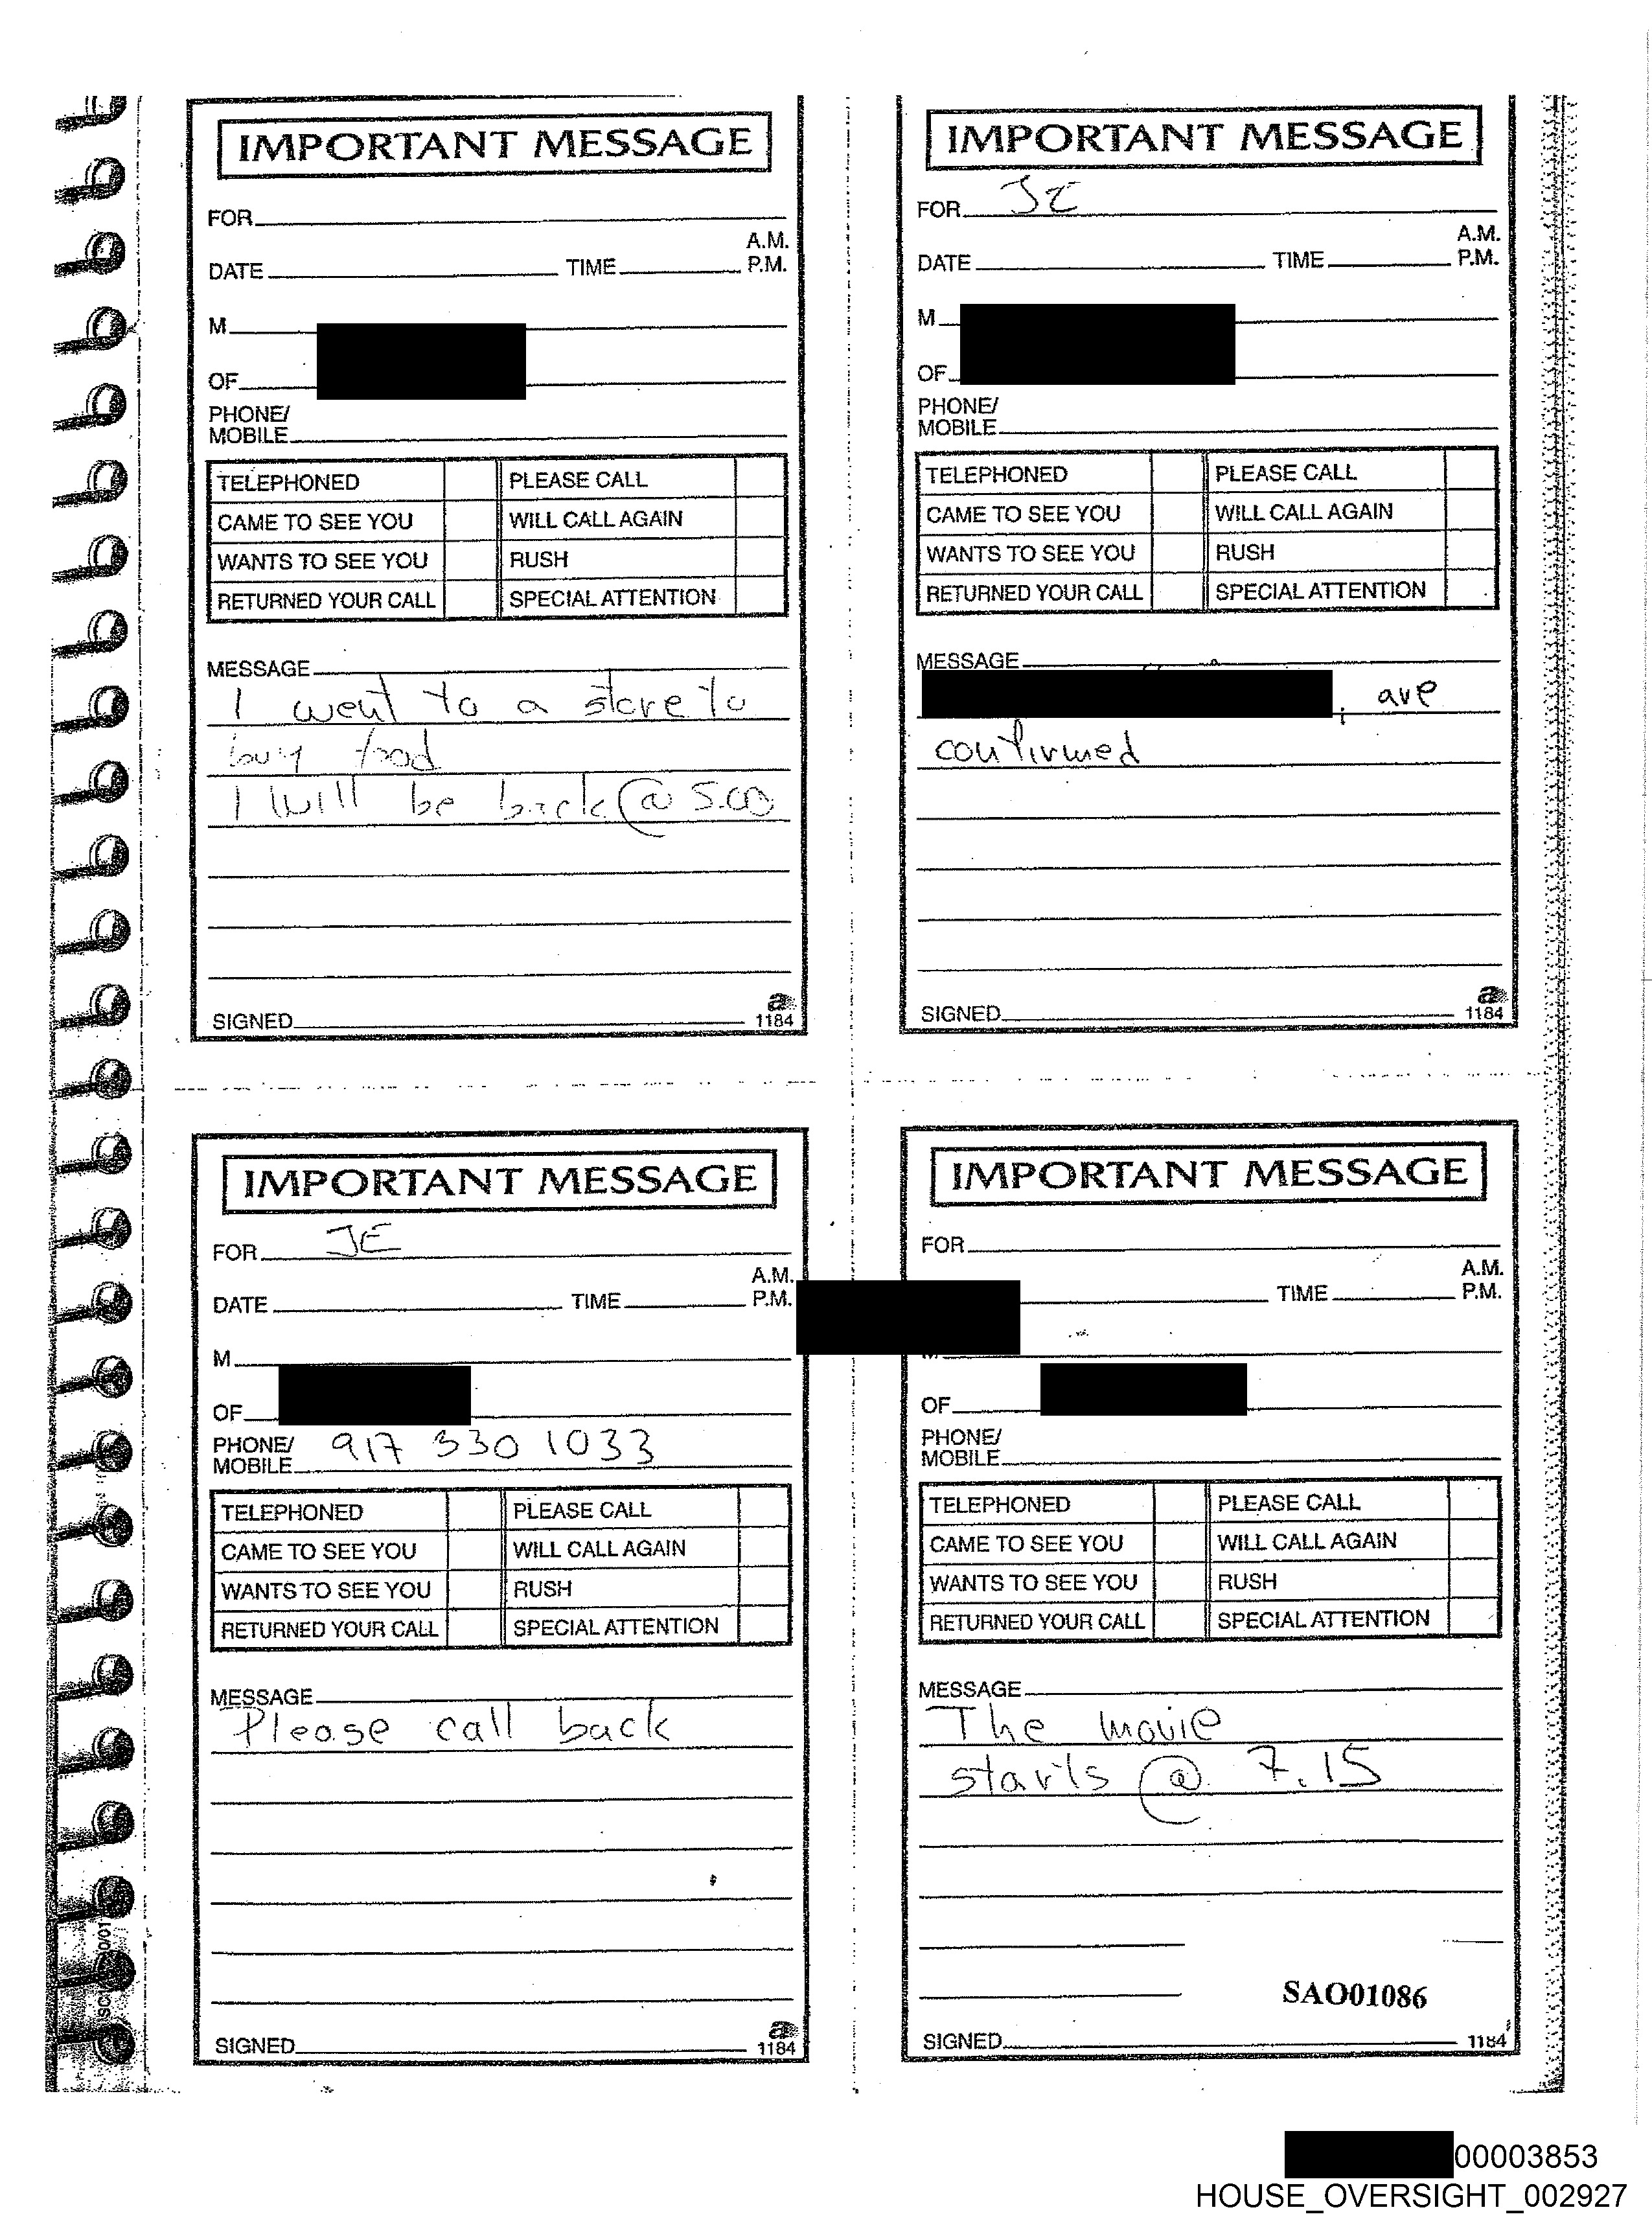 IMPORTANT MESSAGE
FOR
A.M.
DATE TIME P.M.
M
OF
PHONE/
MOBILE
TELEPHONED PLEASE CALL
CAME TO SEE YOU WILL CALL AGAIN
WANTS TO SEE YOU RUSH
RETURNED YOUR CALL SPECIAL ATTENTION
MESSAGE
I went to a store to
buy food
I will be back @ 5.00
SIGNED
a
1184
IMPORTANT MESSAGE
FOR JE
A.M.
DATE TIME P.M.
M
OF
PHONE/
MOBILE
TELEPHONED PLEASE CALL
CAME TO SEE YOU WILL CALL AGAIN
WANTS TO SEE YOU RUSH
RETURNED YOUR CALL SPECIAL ATTENTION
MESSAGE
are
confirmed
SIGNED
a
1184
IMPORTANT MESSAGE
FOR JE
A.M.
DATE TIME P.M.
M
OF
PHONE/ 917 330 1033
MOBILE
TELEPHONED PLEASE CALL
CAME TO SEE YOU WILL CALL AGAIN
WANTS TO SEE YOU RUSH
RETURNED YOUR CALL SPECIAL ATTENTION
MESSAGE
Please call back
SIGNED
a
1184
IMPORTANT MESSAGE
FOR
A.M.
TIME P.M.
OF
PHONE/
MOBILE
TELEPHONED PLEASE CALL
CAME TO SEE YOU WILL CALL AGAIN
WANTS TO SEE YOU RUSH
RETURNED YOUR CALL SPECIAL ATTENTION
MESSAGE
The movie
starts @ 7.15
SAO01086
SIGNED
1184
00003853
HOUSE_OVERSIGHT_002927